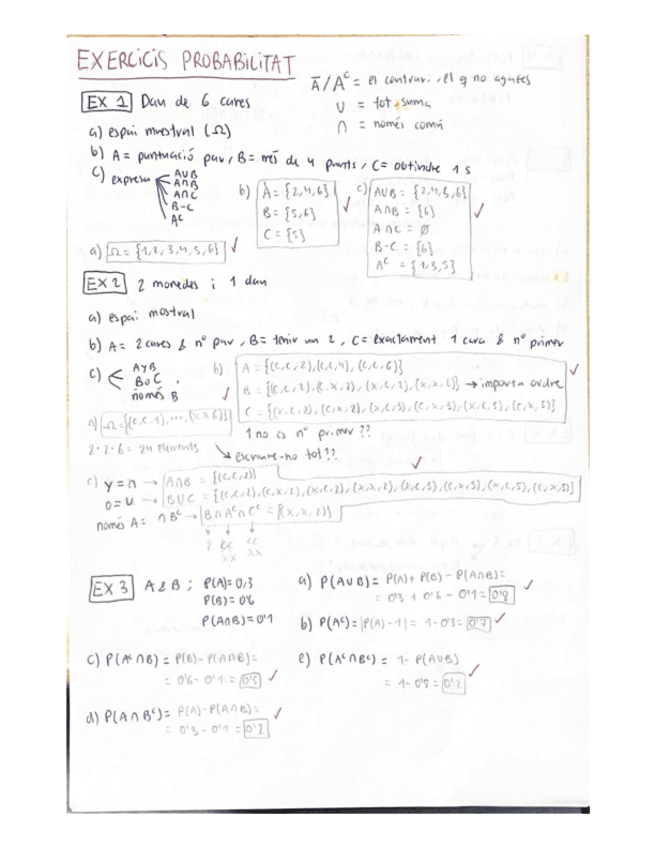 EXERCICIS PROBABILITAT
Ā/Aᶜ = el contrari, el q no agafes
∪ = tot, suma
∩ = només comú
EX 1 Dau de 6 cares
a) espai mostral (Ω)
b) A = puntuació par, B = més de 4 punts, C = obtindre 1 5
c) expresa A∪B
A∩B
A∩C
B-C
Aᶜ
b) A = {2,4,6}
B = {5,6}
C = {5}
c) A∪B = {2,4,5,6}
A∩B = {6}
A∩C = Ø
B-C = {6}
Aᶜ = {1,3,5}
a) Ω = {1,2,3,4,5,6}
EX 2 2 monedes i 1 dau
a) espai mostral
b) A = 2 cares & nº par, B = tenir un 2, C = exactament 1 cara & nº primer
c) AyB
BoC
només B
b) A = {(c,c,2),(c,c,4),(c,c,6)}
B = {(c,c,2),(c,x,2),(x,c,2),(x,x,2)} → importa ordre
C = {(x,c,2),(c,x,2),(x,c,3),(c,x,3),(x,c,5),(c,x,5)}
1 no és nº primer ??
a) Ω = {(c,c,1),...,(x,x,6)}
2·2·6 = 24 elements
escriure-ho tot ??
c) y = ∩ → A∩B = {(c,c,2)}
o = ∪ → B∪C = {(c,c,2),(c,x,2),(x,c,2),(x,x,2),(x,c,3),(c,x,3),(x,c,5),(c,x,5)}
només A = ∩Bᶜ → B∩Aᶜ∩Cᶜ = {(x,x,2)}
EX 3 A & B ; P(A) = 0,3
P(B) = 0'6
P(A∩B) = 0'1
a) P(A∪B) = P(A) + P(B) - P(A∩B) =
= 0'3 + 0'6 - 0'1 = 0'8
b) P(Aᶜ) = |P(A) - 1| = 1 - 0'3 = 0'7
c) P(Aᶜ∩B) = P(B) - P(A∩B) =
= 0'6 - 0'1 = 0'5
e) P(Aᶜ∩Bᶜ) = 1 - P(A∪B)
= 1 - 0'8 = 0'2
d) P(A∩Bᶜ) = P(A) - P(A∩B) =
= 0'3 - 0'1 = 0'2